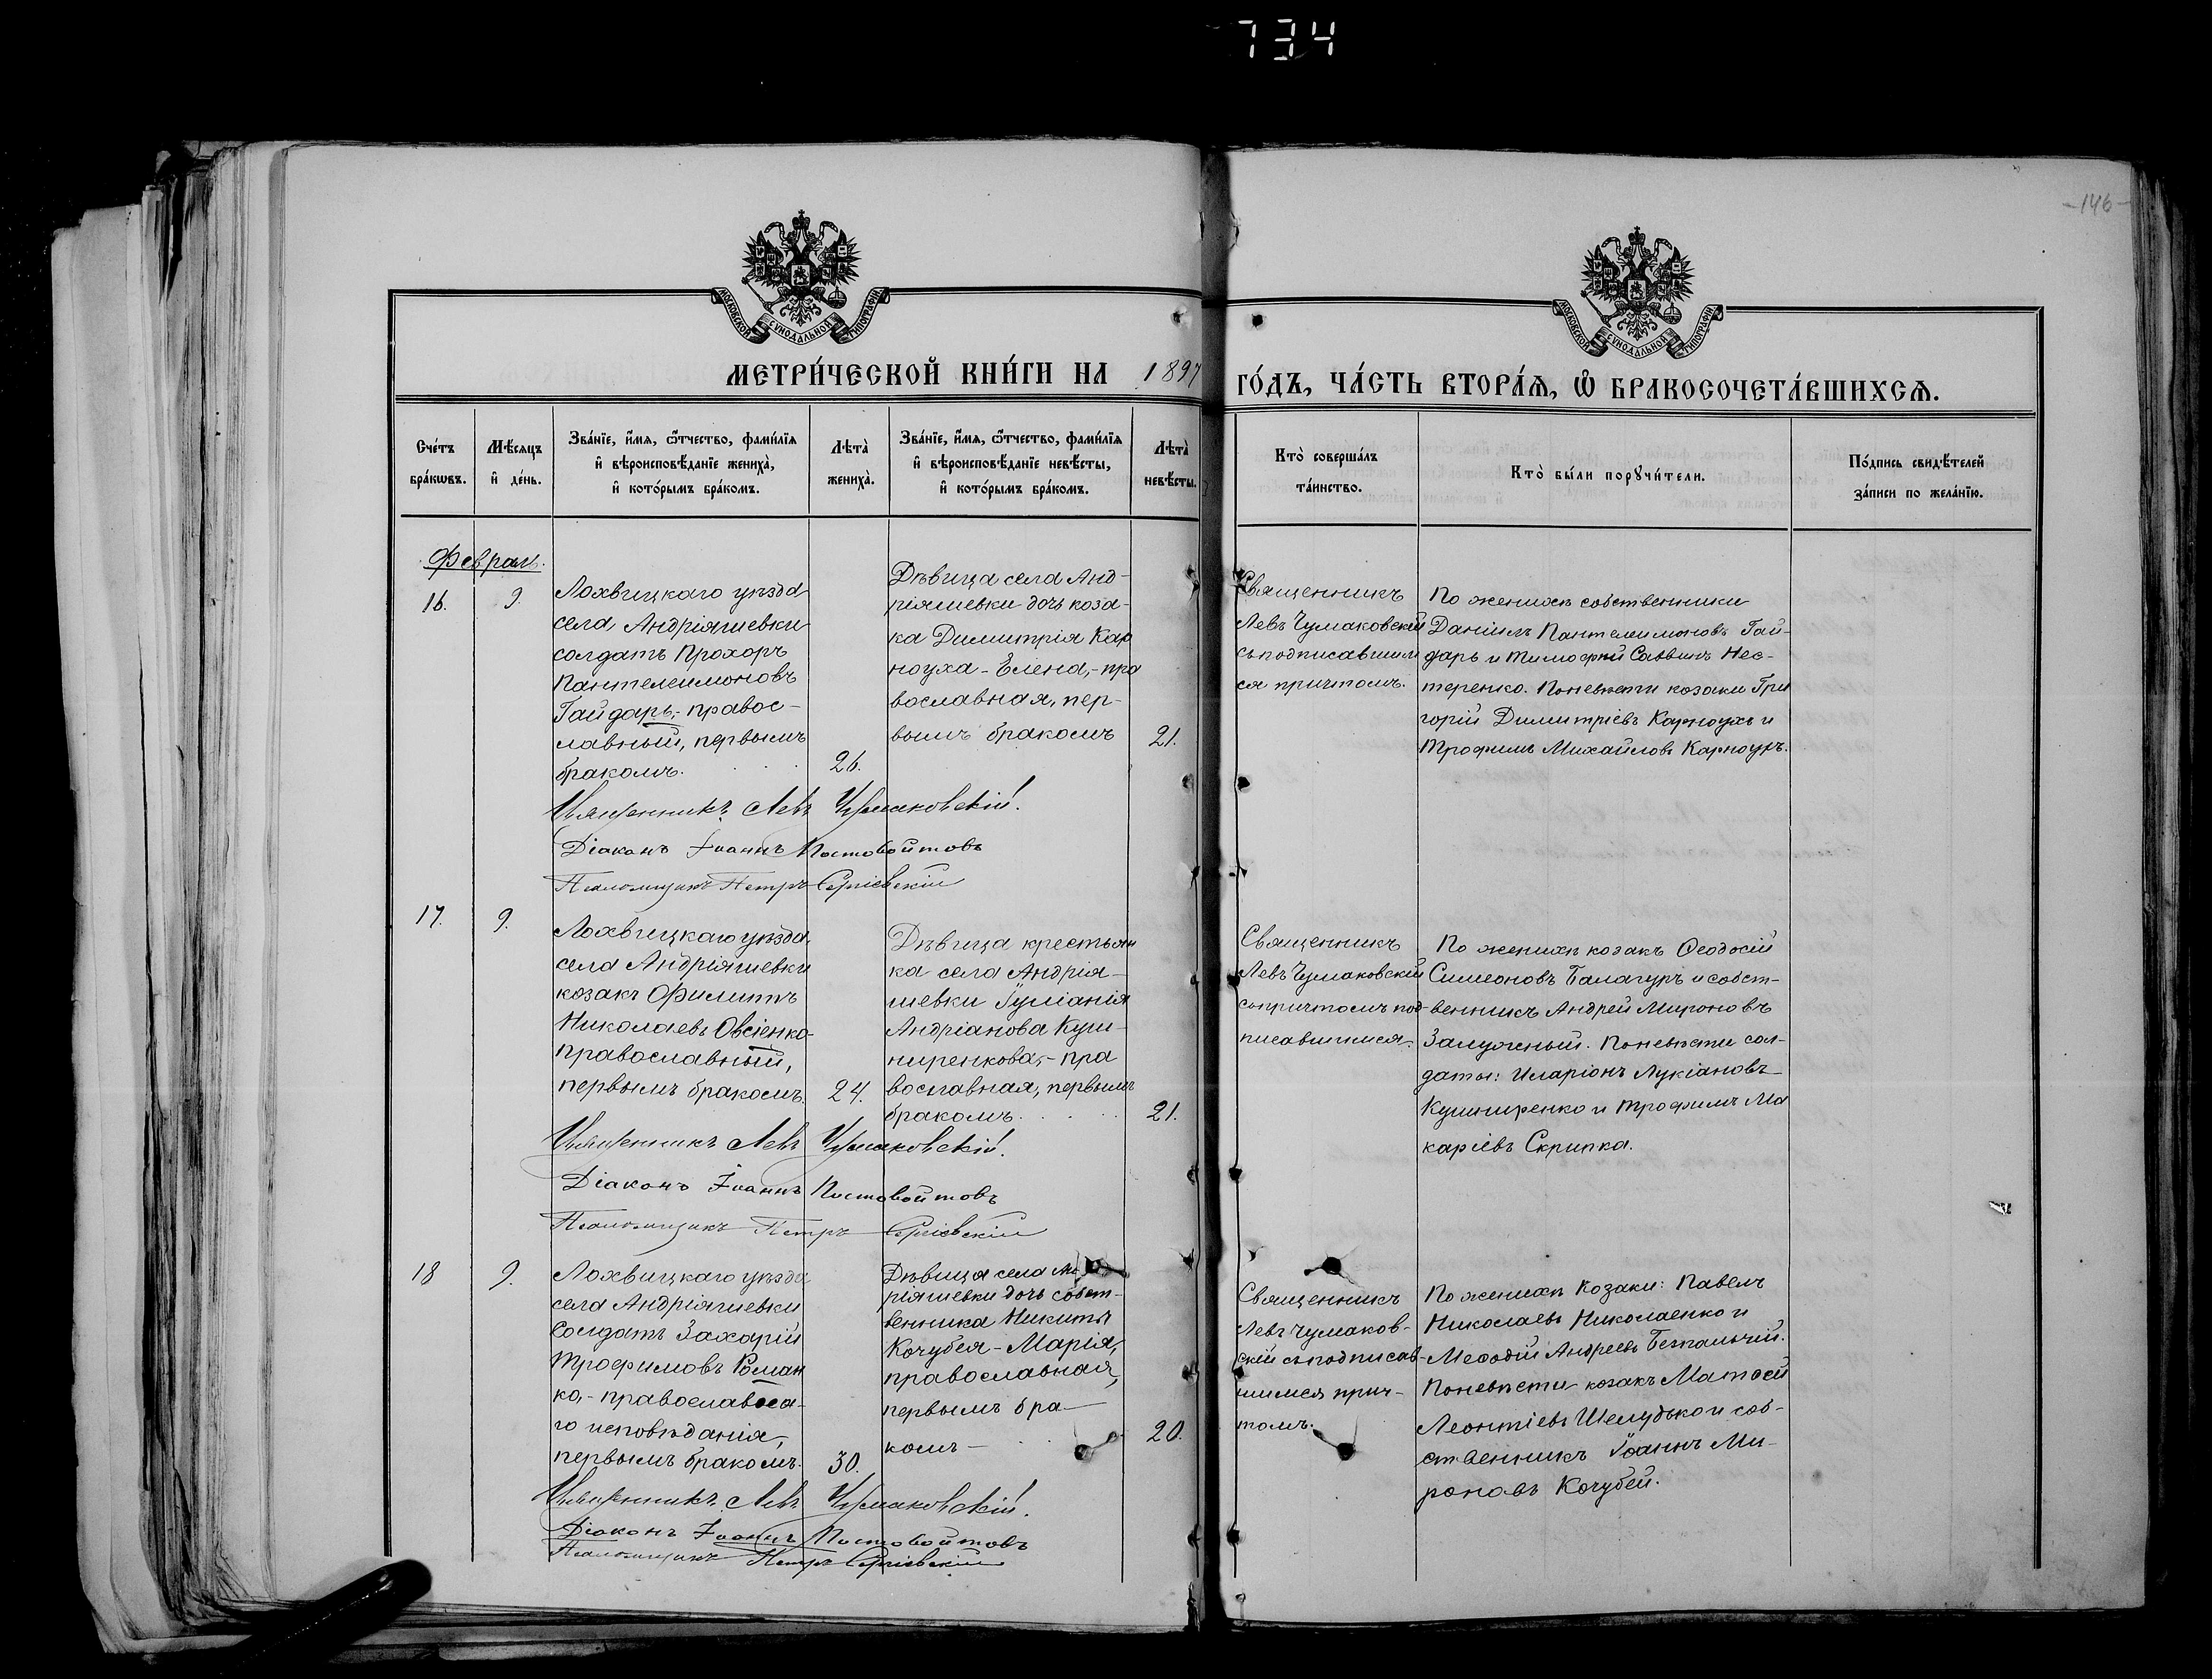 734
-146-
МОСКОВСКОЙ СѴНОДАЛЬНОЙ ТИПОГРАФІИ
МОСКОВСКОЙ СѴНОДАЛЬНОЙ ТИПОГРАФІИ
МЕТРИ́ЧЕСКОЙ КНИ́ГИ НА 1897 ГО́ДЪ, ЧА́СТЬ ВТОРА́Ѧ, Ѽ БРАКОСОЧЕТА́ВШИХСѦ.
Сче́тъ
бра́кѡвъ.
Мѣ́сяцъ
и҆ де́нь.
Зва́нїе, и҆́мѧ, ѻ҆́тчество, фами́лїѧ
и҆ вѣроисповѣ́данїе жениха̀,
и҆ кото́рымъ бра́комъ.
Лѣта̀
жениха̀.
Зва́нїе, и҆́мѧ, ѻ҆́тчество, фами́лїѧ
и҆ вѣроисповѣ́данїе невѣ́сты,
и҆ кото́рымъ бра́комъ.
Лѣта̀
невѣ́сты.
Кто̀ соверша́лъ
та́инство.
Кто̀ бы́ли порꙋчи́тели.
По́дпись свидѣ́телей
за́писи по жела́нїю.
Февраль.
16.
9.
Лохвицкаго уѣзда
села Андріяшевки
солдатъ Прохоръ
Пантелеимоновъ
Гайдаръ,- правос-
лавный, первымъ
бракомъ.
26.
Дѣвица села Анд-
ріяшевки дочь коза-
ка Димитрія Кар
ноуха - Елена,- пра
вославная, пер-
вымъ бракомъ
21.
Священникъ
Левъ Чумаковскій
съ подписавшим
ся причтомъ.
По женихѣ собственники
Даніилъ Пантелеимоновъ Гай-
даръ и Тимофей Саввинъ Нес-
теренко. По невѣсти козаки Гри
горій Димитріевъ Карноухъ и
Трофимъ Михайловъ Карноухъ.
Священникъ Левъ Чумаковскій.
Діаконъ Іоаннъ Постовойтовъ
Псаломщикъ Петръ Сергіевскій
17.
9.
Лохвицкаго уѣзда
села Андріяшевки
козакъ Филиппъ
Николаевъ Овсіенко-
православный,
первымъ бракомъ.
24.
Дѣвица крестьян
ка села Андрія-
шевки Іуліанія
Андріанова Куш-
ниренкова,- пра
вославная, первымъ
бракомъ.
21.
Священникъ
Левъ Чумаковскій
съ причтомъ под-
писавшимся.
По женихѣ козакъ Ѳеодосій
Симеоновъ Балагуръ и собст-
венникъ Андрей Мироновъ
Залужный. По невѣсти сол-
даты: Иларіонъ Лукіановъ
Кушниренко и Трофимъ Ма
каріевъ Скрипка.
Священникъ Левъ Чумаковскій.
Діаконъ Іоаннъ Постовойтовъ
Псаломщикъ Петръ Сергіевскій
18
9.
Лохвицкаго уѣзда
села Андріяшевки
Солдатъ Захарій
Трофимовъ Роман
ко,- православна-
го исповѣданія,
первымъ бракомъ.
30.
Дѣвица села
ріяшевки дочь собст-
венника Никиты
Кочубея - Марія,
православная,
первымъ бра-
комъ -
20.
Священникъ
Левъ Чумаков-
скій съ подписав-
шимся прич-
томъ.
По женихѣ козаки: Павелъ
Николаевъ Николаенко и
Меѳодій Андреевъ Безпальчій.
По невѣсти козакъ Матѳей
Леонтіевъ Шелудько и соб-
ственникъ Іоаннъ Ми-
роновъ Кочубей.
Священникъ Левъ Чумаковскій.
Діаконъ Іоаннъ Постовойтовъ
Псаломщикъ Петръ Сергіевскій